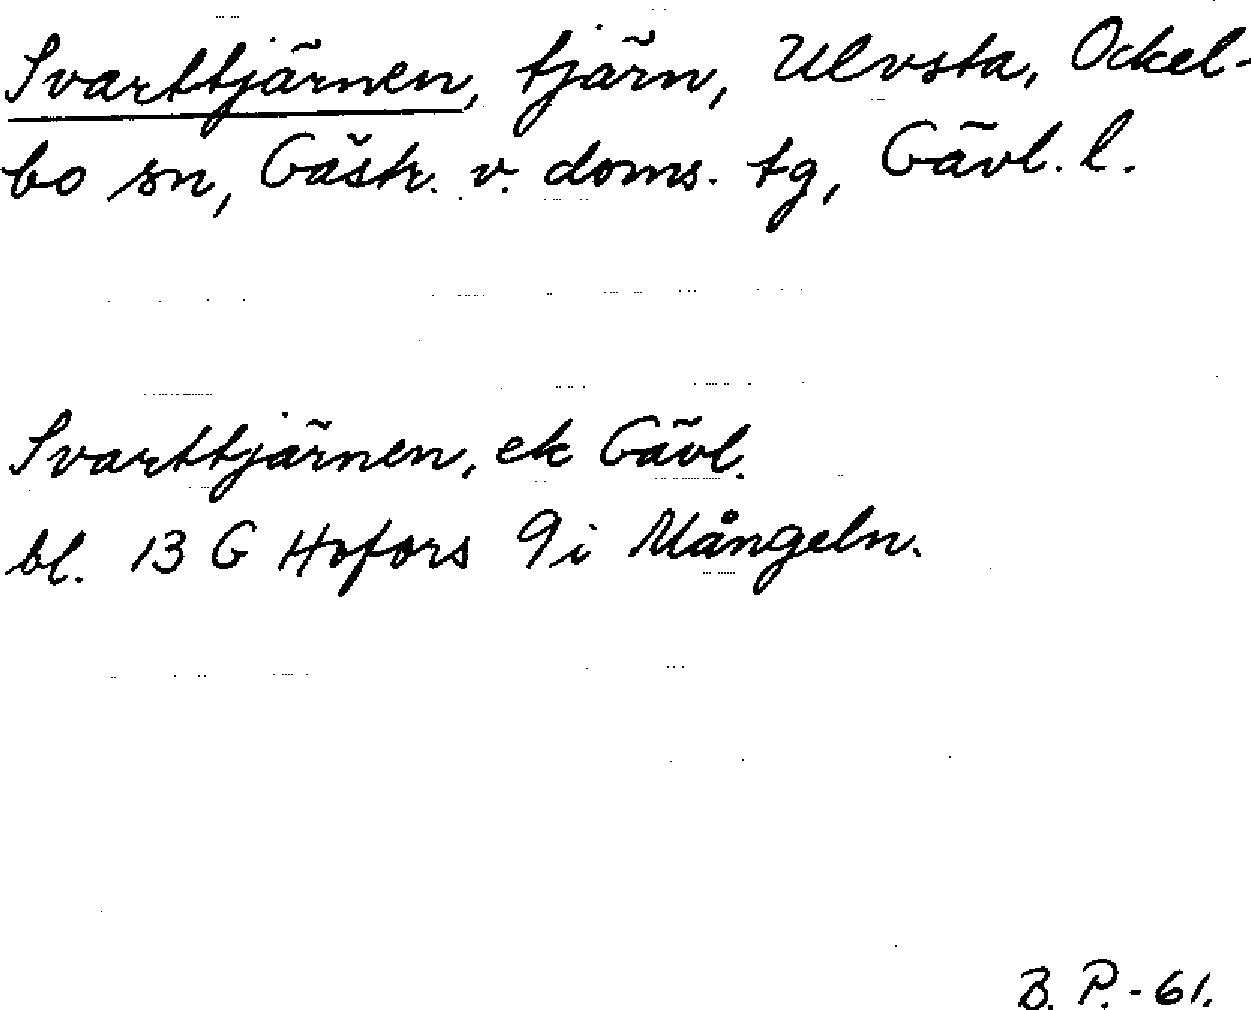 Svarttjärnen, tjärn, Ulvsta, Ockel-
bo sn, Gästr. v. doms. tg, Gävl. l.
Svarttjärnen, ek Gävl.
bl. 13 G Hofors 9i Mångeln.
B. P.-61.